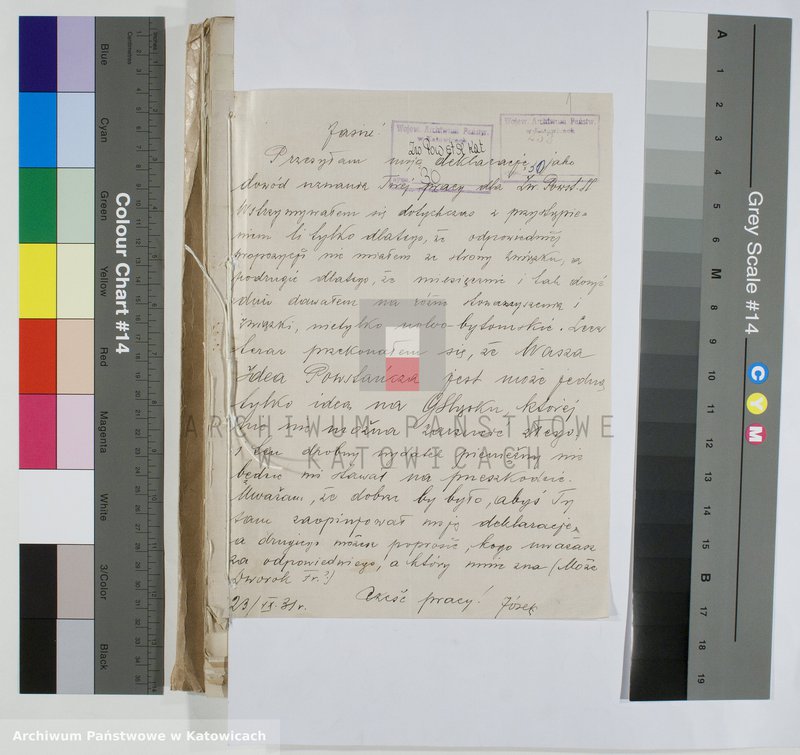 Jasiu!
Przesyłam moją deklarację, jako
dowód uznania Twej pracy dla Zw. Powst. Śl.
Wstrzymywałem się dotychczas z przystąpie-
niem li tylko dlatego, że odpowiedniej
propozycji nie miałem ze strony Związku, a
podrugie dlatego, że miesięcznie i tak dosyć
dużo dawałem na różne stowarzyszenia i
związki, nietylko bytomskie. Lecz
teraz przekonałem się, że Wasza
Idea Powstańcza jest może jedną
tylko ideą na G/Śląsku, której
nic nie można zarzucić złego
i ten drobny wydatek pieniężny nie
będzie mi stawał na przeszkodzie.
Uważam, że dobrze by było, abyś Ty
sam zaopinjował moją deklarację,
a drugiego możesz poprosić, kogo uważasz
za odpowiedniego, a który mnie zna (Może
Dworok Fr.?)
23/IX.31r. Cześć pracy! Józek
Wojew. Archiwum Państw.
w Katowicach
Zw Powst Śl Kat
30
Wojew. Archiwum Państw.
w Katowicach
1
ARCHIWUM PAŃSTWOWE
W KATOWICACH
Colour Chart #14
Blue
Cyan
Green
Yellow
Red
Magenta
White
3/Color
Black
Centimetres
Inches
Grey Scale #14
C
Y
M
A
1
2
3
4
5
6
M
8
9
10
11
12
13
14
15
B
17
18
19
Archiwum Państwowe w Katowicach